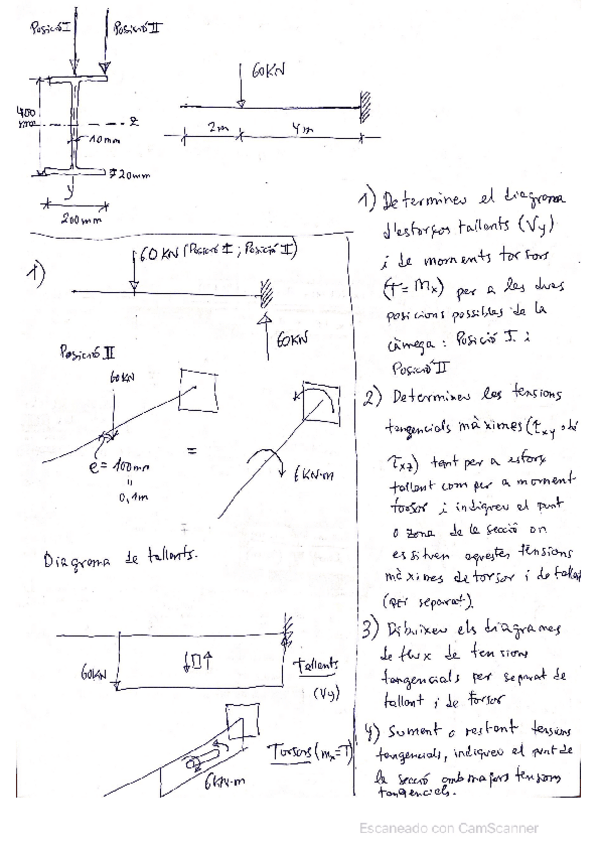 Posició I
Posició II
400
mm
z
10mm
20mm
y
200mm
60KN
2m
4m
1) Determineu el diagrama
d'esforços tallants (Vy)
i de moments torsors
(T = Mx) per a les dues
posicions possibles de la
càrrega: Posició I i
Posició II
2) Determineu les tensions
tangencials màximes (τxy o bé
τxz) tant per a esforç
tallant com per a moment
torsor i indiqueu el punt
o zona de la secció on
es situen aquestes tensions
màximes de torsor i de tallant
(per separat).
3) Dibuixeu els diagrames
de flux de tensions
tangencials per separat de
tallant i de torsor
4) Sumant o restant tensions
tangencials, indiqueu el punt de
la secció amb majors tensions
tangencials.
1)
60KN (Posició I ; Posició II)
60KN
Posició II
60KN
e = 100mm
"
0,1m
=
6KN·m
Diagrama de tallants.
60KN
Tallants
(Vy)
Torsors (mx=T)
6KN·m
Escaneado con CamScanner